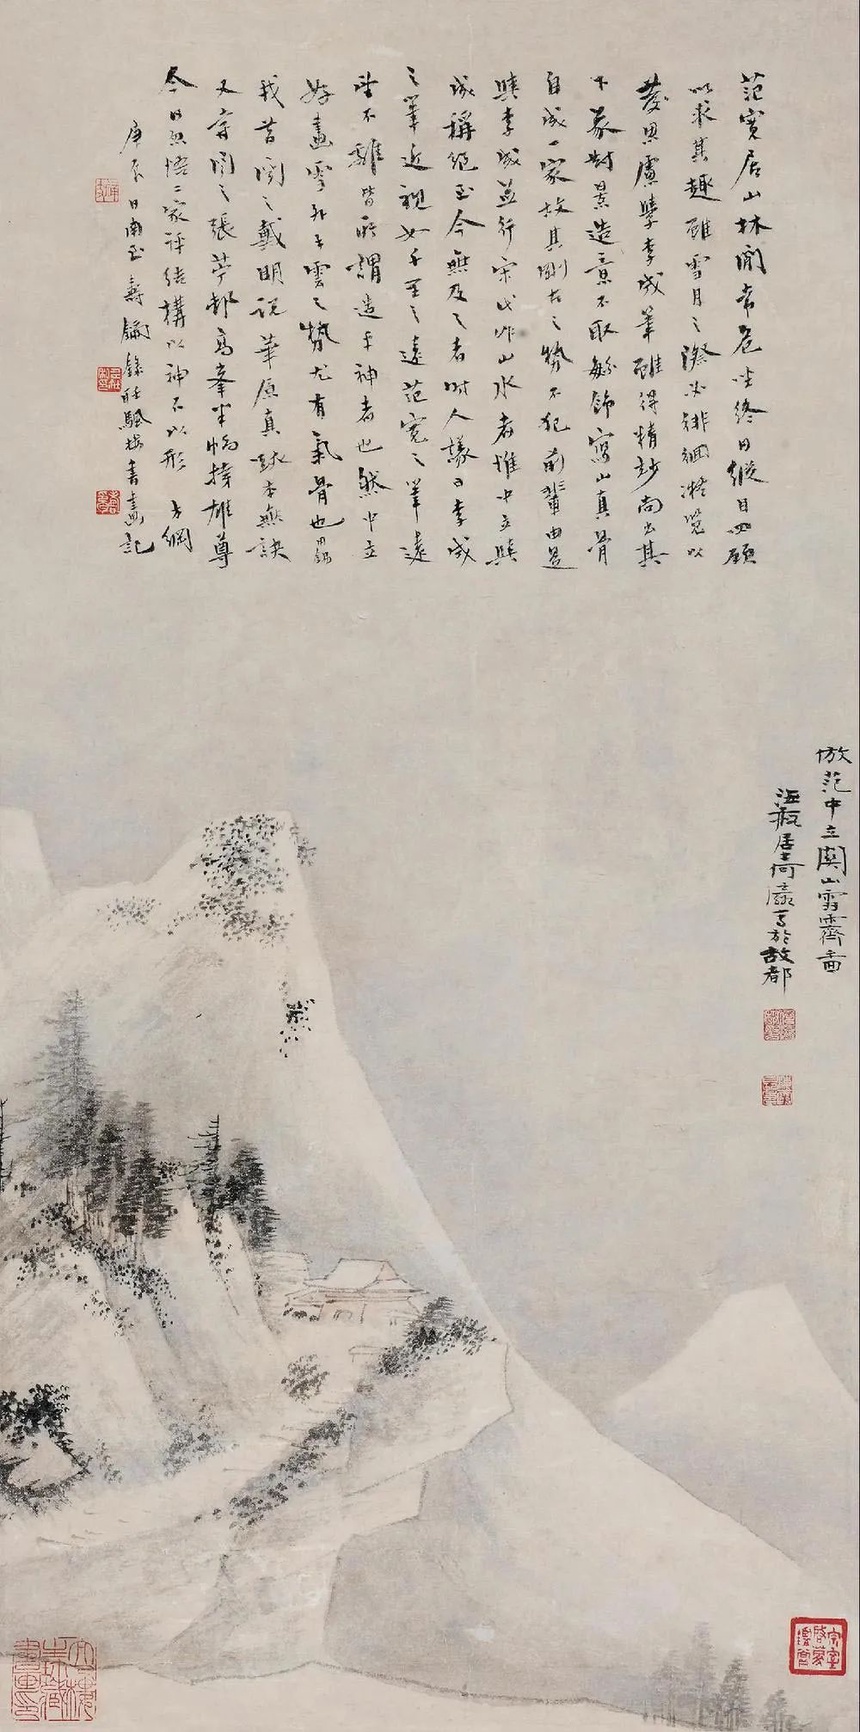 范寬居山林間常危坐終日縱目四顧
以求其趣雖雪月之際必徘徊凝覽以
發思慮學李成筆雖得精妙尚出其
下遂對景造意不取繁飾寫山真骨
自成一家故其剛古之勢不犯前輩由是
與李成並行宋代作山水者惟中立與
成稱絕至今無及之者時人議曰李成
之筆近視如千里之遠范寬之筆遠
望不離皆所謂造乎神者也然中立
好畫雪其雲之勢尤有氣骨也
我昔聞之戴明說華原真跡本無訣
又高峯半幅撐雄尊
今日忽悟二家評結構以神不以形 方綱
庚辰日南至壽鑈錄於楓樓書畫記
倣范中立關山雪霽圖
海叔居士何瀛寫於故都